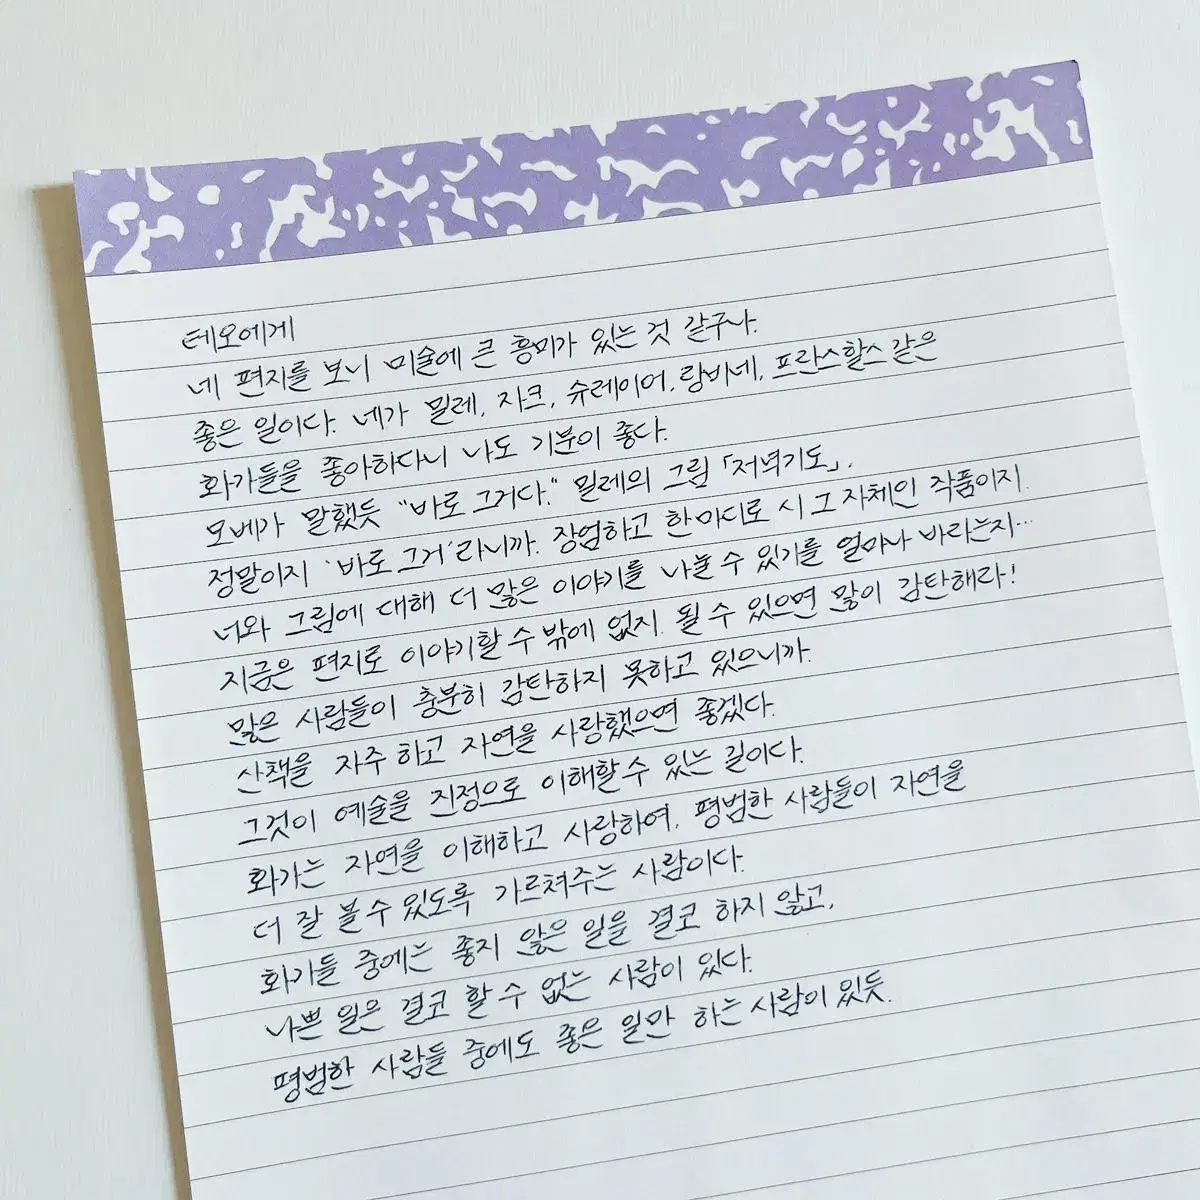 테오에게
네 편지를 보니 미술에 큰 흥미가 있는 것 같구나.
좋은 일이다. 네가 밀레, 자크, 슈레이어, 랑비네, 프란스할스 같은
화가들을 좋아하다니 나도 기분이 좋다.
모베가 말했듯 "바로 그거다." 밀레의 그림 「저녁기도」,
정말이지 '바로 그거'라니까. 장엄하고 한마디로 시 그 자체인 작품이지.
너와 그림에 대해 더 많은 이야기를 나눌 수 있기를 얼마나 바라는지…
지금은 편지로 이야기할 수 밖에 없지. 될 수 있으면 많이 감탄해라!
많은 사람들이 충분히 감탄하지 못하고 있으니까.
산책을 자주 하고 자연을 사랑했으면 좋겠다.
그것이 예술을 진정으로 이해할 수 있는 길이다.
화가는 자연을 이해하고 사랑하여, 평범한 사람들이 자연을
더 잘 볼 수 있도록 가르쳐주는 사람이다.
화가들 중에는 좋지 않은 일을 결코 하지 않고,
나쁜 일은 결코 할 수 없는 사람이 있다.
평범한 사람들 중에도 좋은 일만 하는 사람이 있듯.